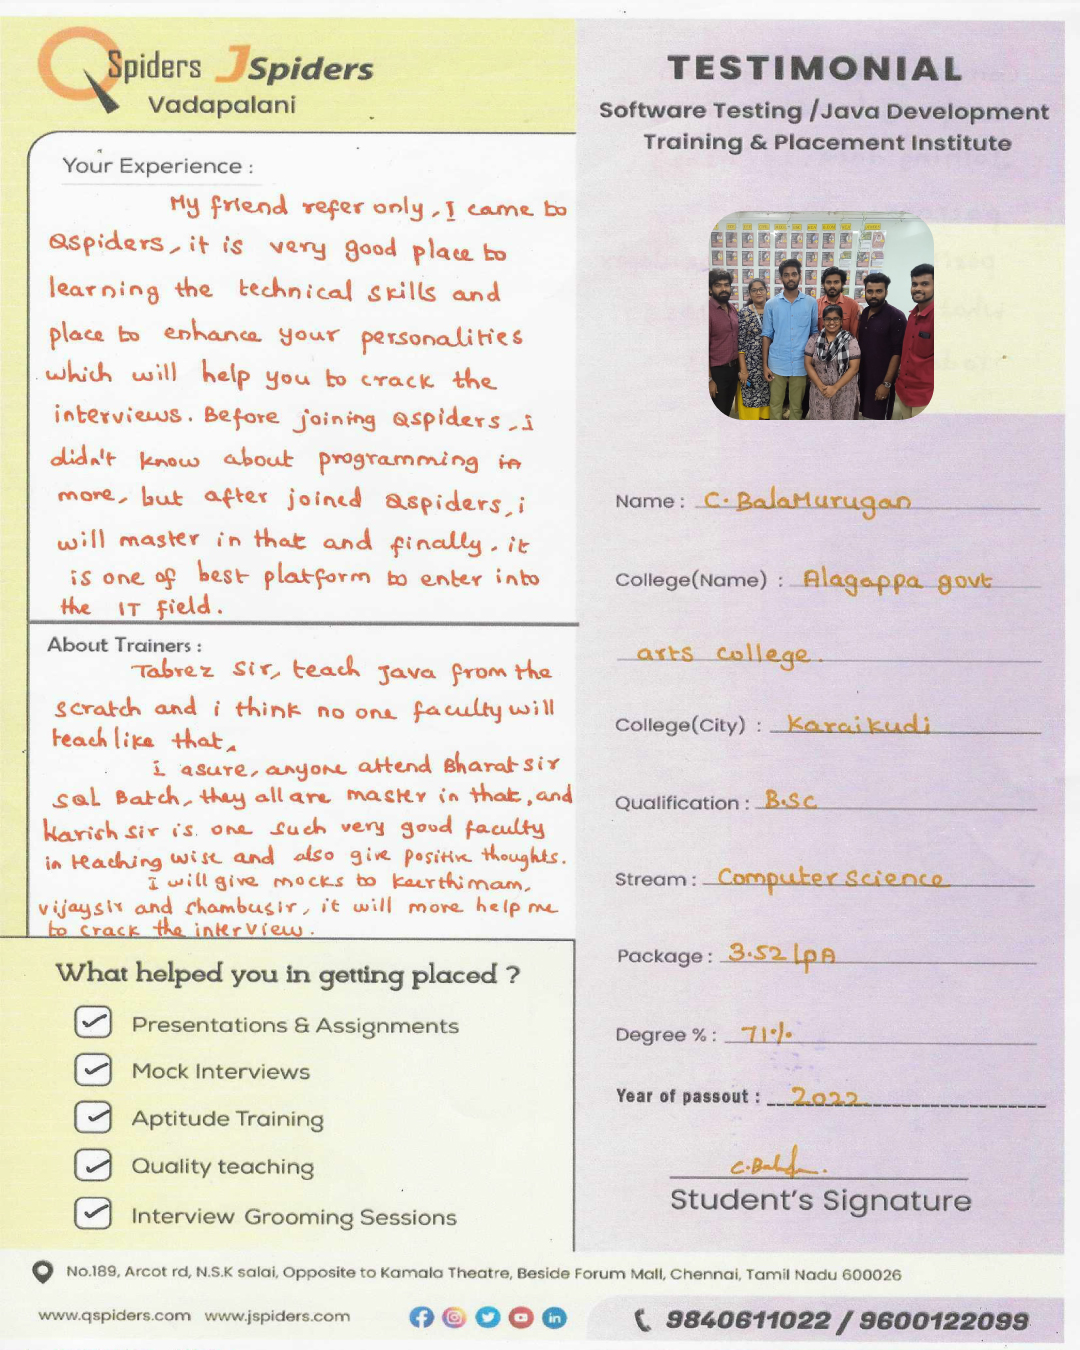 QSpiders JSpiders
Vadapalani
TESTIMONIAL
Software Testing /Java Development
Training & Placement Institute
Your Experience :
My friend refer only, I came to
Qspiders, it is very good place to
learning the technical skills and
place to enhance your personalities
which will help you to crack the
interviews. Before joining Qspiders, i
didn't know about programming in
more, but after joined Qspiders, i
will master in that and finally, it
is one of best platform to enter into
the IT field.
About Trainers :
Tabrez Sir, teach Java from the
scratch and i think no one faculty will
teach like that,
i asure, anyone attend Bharat sir
SQL Batch, they all are master in that, and
Harish sir is one such very good faculty
in teaching wise and also give positive thoughts.
I will give mocks to keerthi mam,
vijay sir and Shambu sir, it will more help me
to crack the interview.
What helped you in getting placed ?
Presentations & Assignments
Mock Interviews
Aptitude Training
Quality teaching
Interview Grooming Sessions
Name : C. BalaMurugan
College(Name) : Alagappa govt
arts college.
College(City) : Karaikudi
Qualification : B.Sc
Stream : Computer Science
Package : 3.52 LPA
Degree % : 71%
Year of passout : 2022
Student's Signature
No.189, Arcot rd, N.S.K salai, Opposite to Kamala Theatre, Beside Forum Mall, Chennai, Tamil Nadu 600026
www.qspiders.com www.jspiders.com
9840611022 / 9600122099